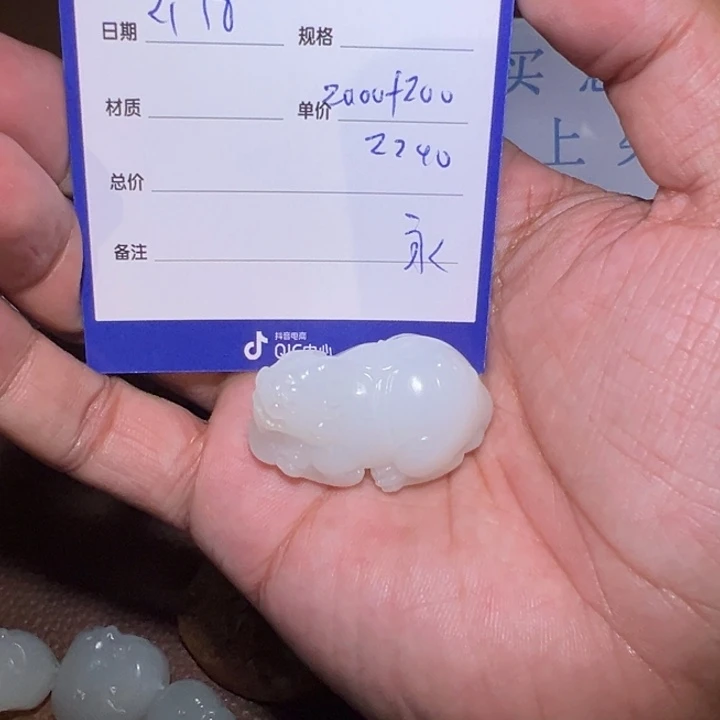 日期 规格
材质 单价 2000+200
2240
总价
备注 永
抖音电商
QIC中心
买
上